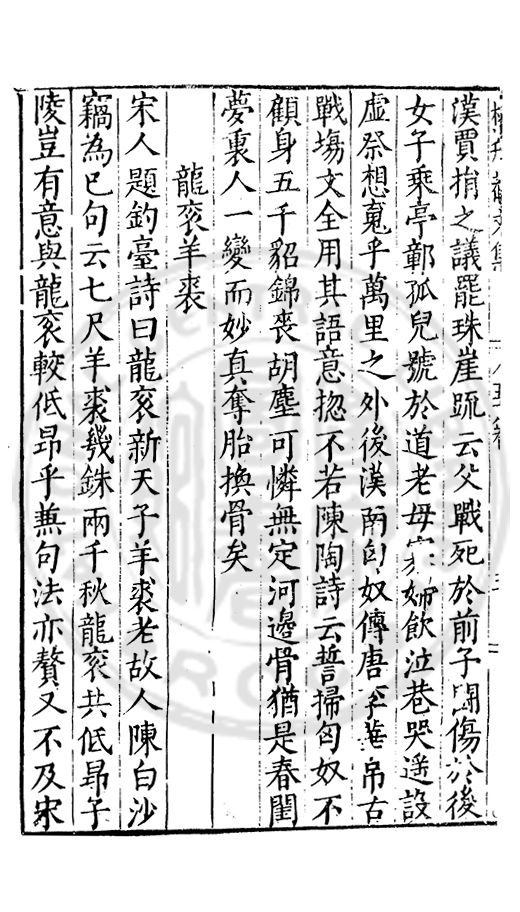 漢賈捐之議罷珠崖䟽云父戰死於前子鬪傷於後
女子乘亭鄣孤兒號於道老母寡婦飲泣巷哭遥設
虚祭想䰟乎萬里之外後漢南匈奴傳唐李華吊古
戰塲文全用其語意揔不若陳陶詩云誓掃匈奴不
顧身五千貂錦喪胡塵可憐無定河邊骨猶是春閨
夢裏人一變而妙真奪胎換骨矣
龍衮羊裘
宋人題釣臺詩曰龍衮新天子羊裘老故人陳白沙
竊為已句云七尺羊裘幾銖兩千秋龍衮共低昻子
陵豈有意與龍衮較低昻乎蕪句法亦贅又不及宋